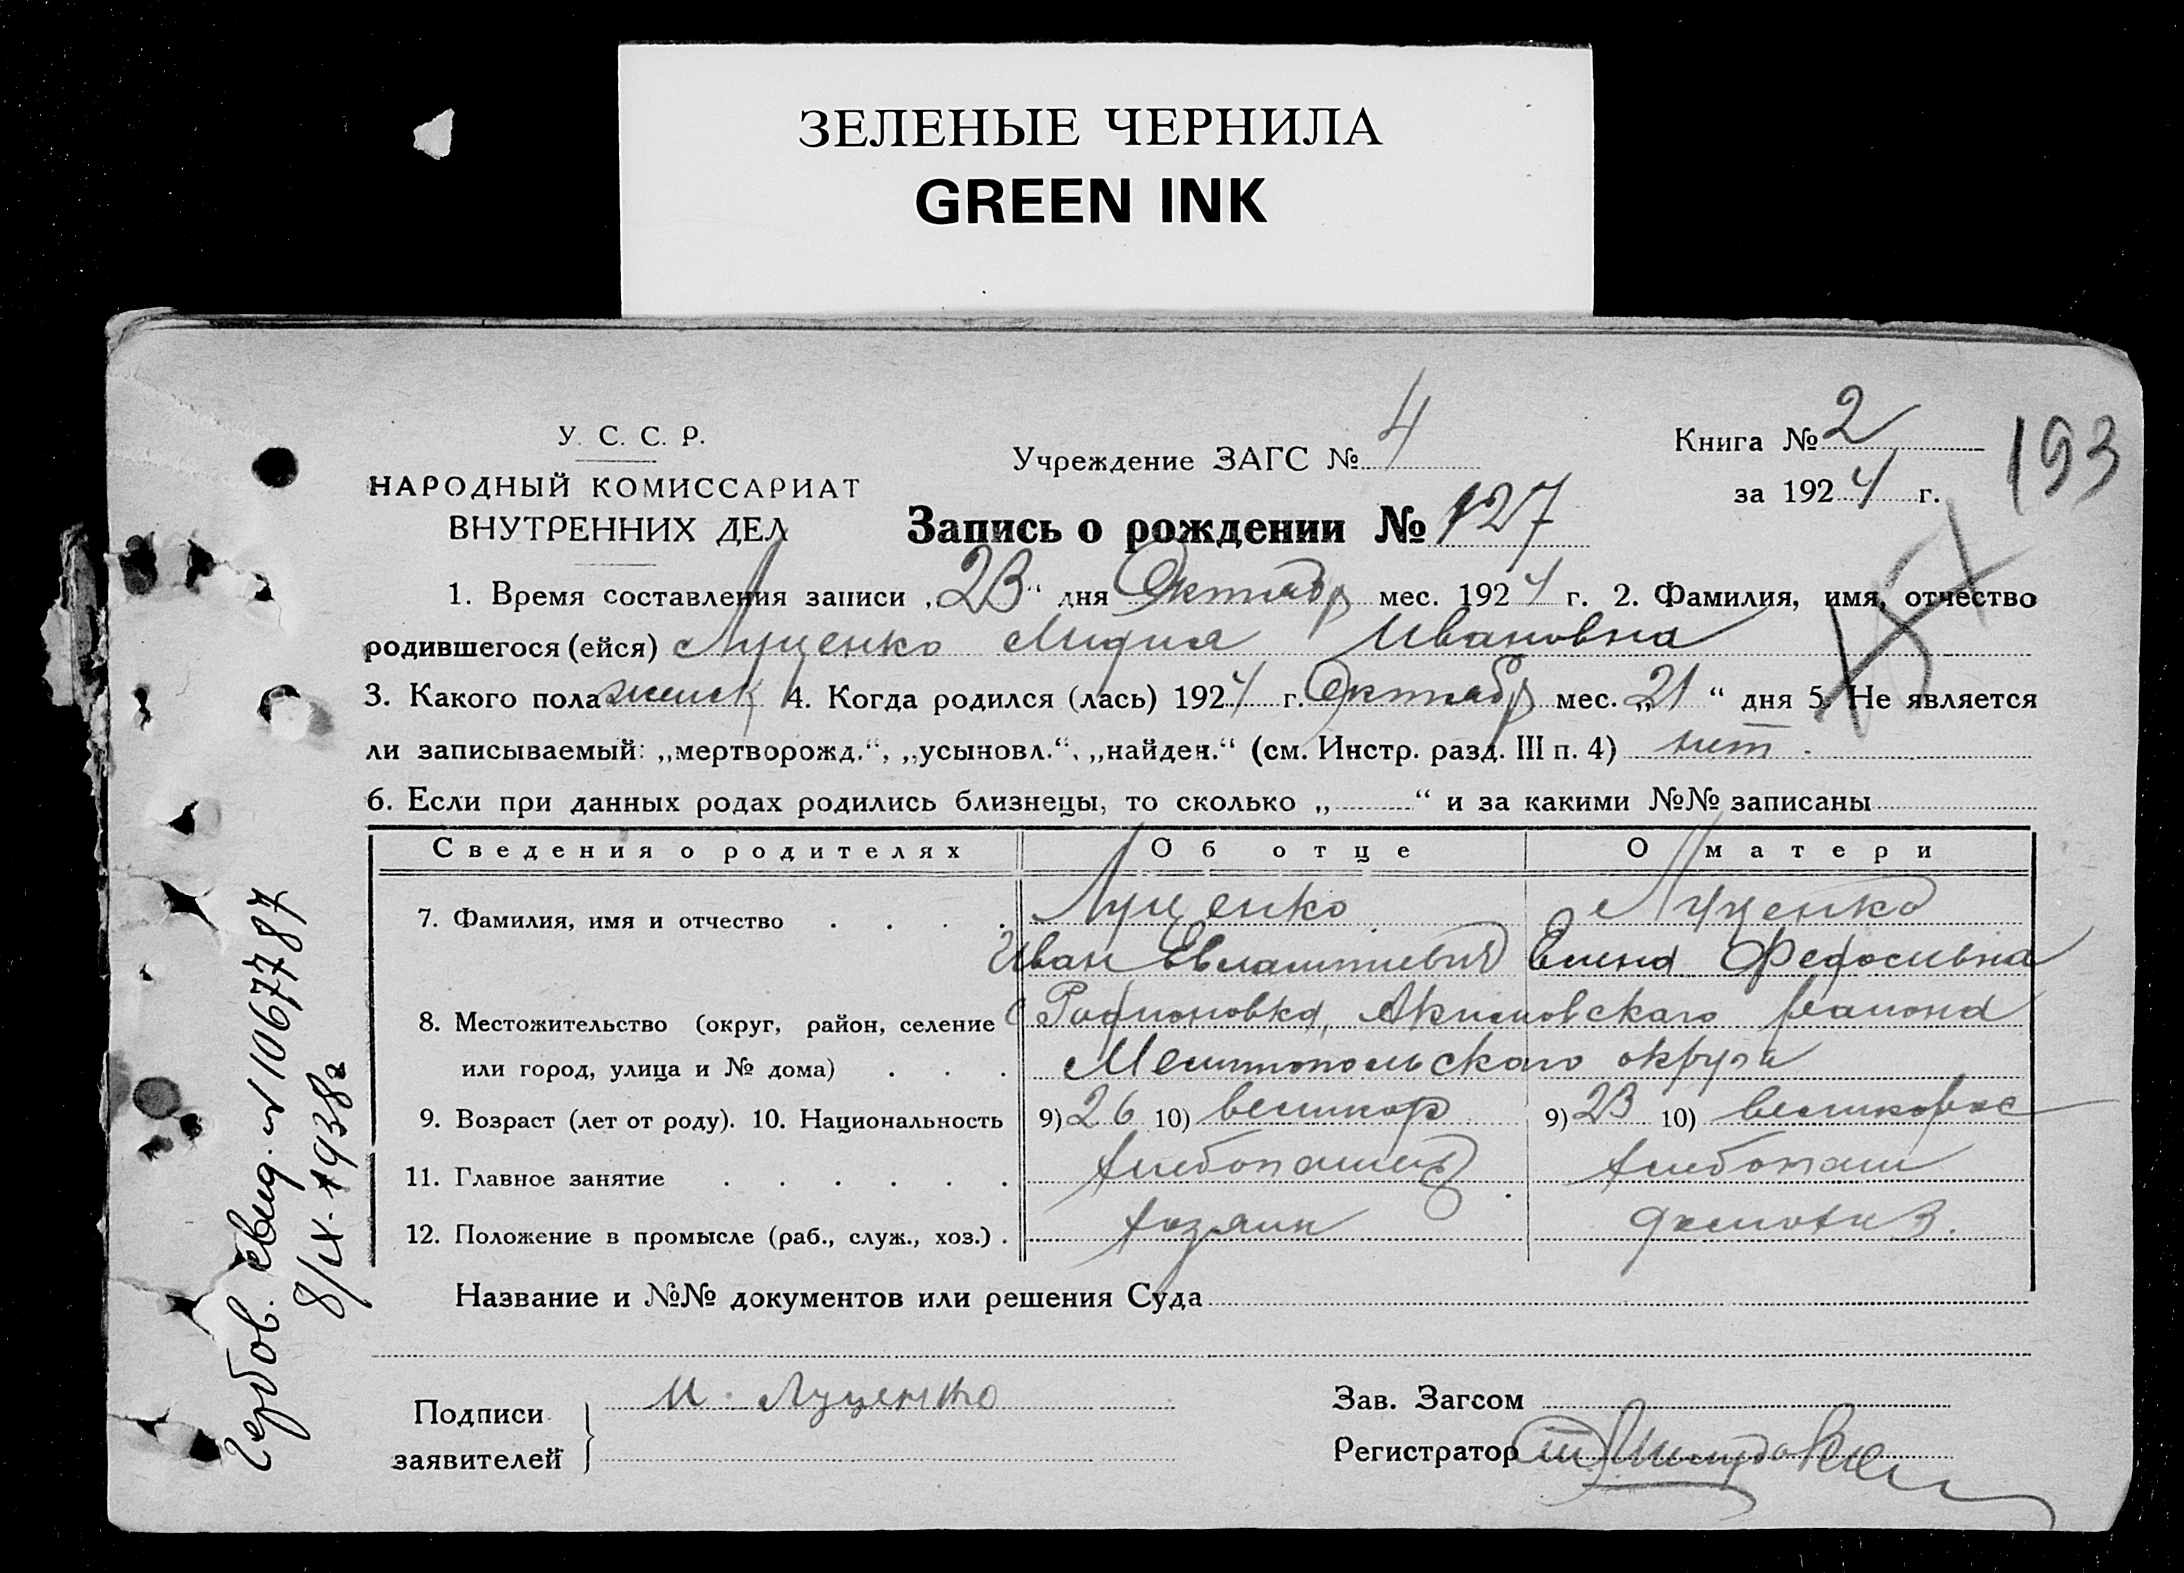 ЗЕЛЕНЫЕ ЧЕРНИЛА
GREEN INK
У. С. С. Р.
НАРОДНЫЙ КОМИССАРИАТ
ВНУТРЕННИХ ДЕЛ
Учреждение ЗАГС № 4
Книга № 2
за 1924 г.
193
Запись о рождении № 127
1. Время составления записи „23“ дня Октябр мес. 1924 г. 2. Фамилия, имя, отчество
родившегося (ейся) Луценко Лидия Ивановна
3. Какого пола женск 4. Когда родился (лась) 1924 г. Октябр мес. „21“ дня 5. Не является
ли записываемый: „мертворожд.“, „усыновл.“, „найден.“ (см. Инстр. разд. III п. 4) нет.
6. Если при данных родах родились близнецы, то сколько „ “ и за какими №№ записаны
Сведения о родителях Об отце О матери
7. Фамилия, имя и отчество Луценко Луценко
Иван Евлампиевич Елена
8. Местожительство (округ, район, селение с Родионовка, Акимовскаго района
или город, улица и № дома) Мелитопольскаго округа
9. Возраст (лет от роду). 10. Национальность 9) 26 10) великор 9) 23 10) великорос
11. Главное занятие хлебопашец хлебопаш
12. Положение в промысле (раб., служ., хоз.) хозяин домохоз.
Название и №№ документов или решения Суда
Подписи заявителей И. Луценко
Зав. Загсом
Регистратор
Гербов. свид. № 1067787
8/IX-1938г